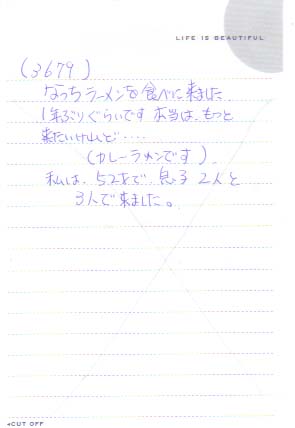 LIFE IS BEAUTIFUL
(3679)
なっちラーメンを食べに来ました
1年ぶりぐらいです 本当は、もっと
来たいけんど・・・・
(カレーラーメンです)
私は、52才で、息子 2人と
3人で来ました。
◂CUT OFF